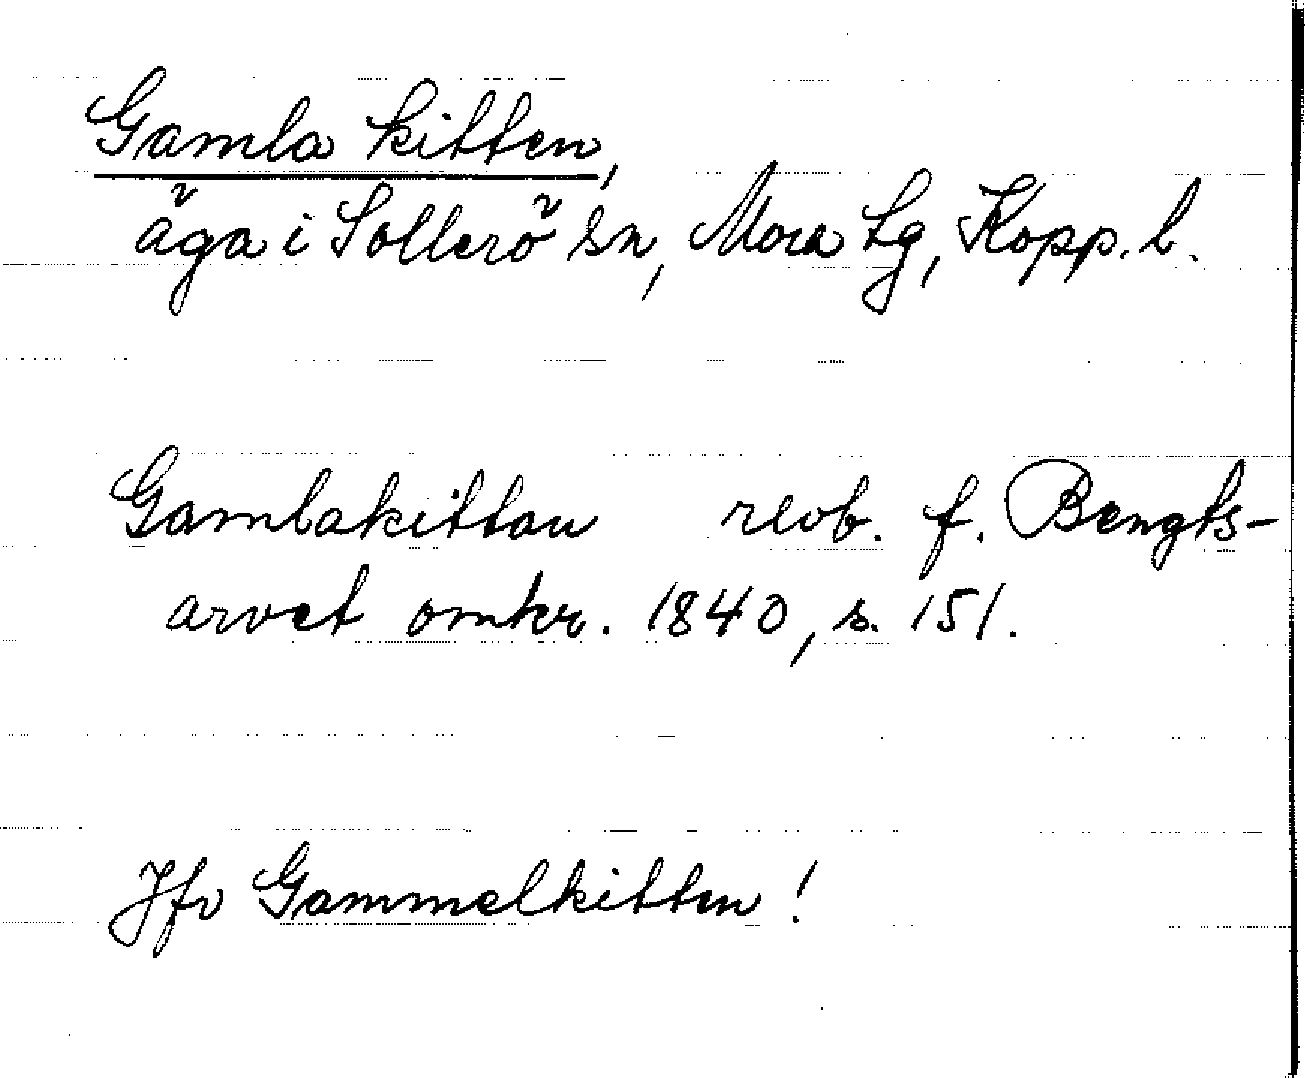 Gamla kitten,
äga i Sollerö sn, Mora Lg, Kopp. l.
Gamlakittan revb. f. Bengts-
arvet omkr. 1840, s. 151.
Jfr Gammelkitten!